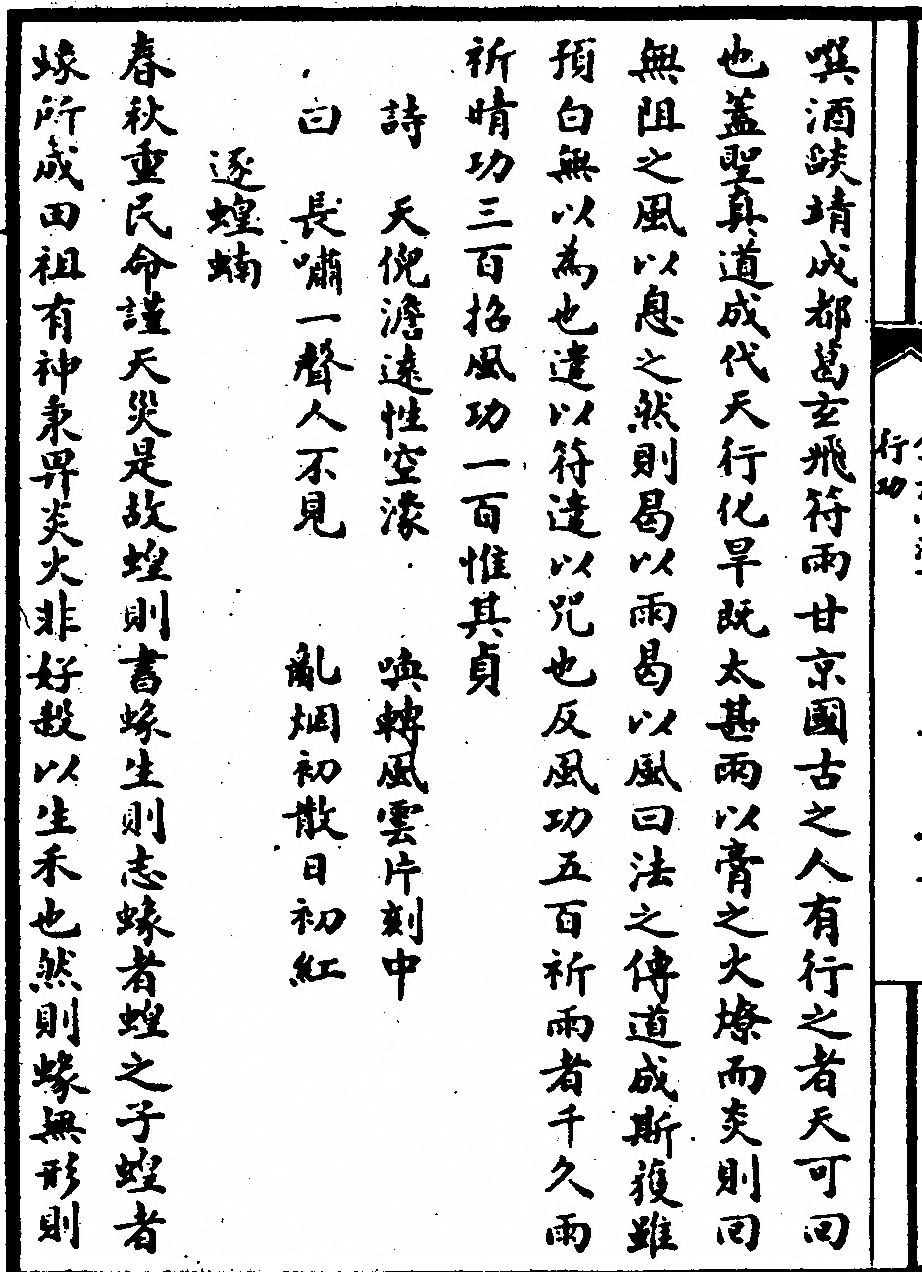 噀酒燄靖成都葛玄飛符雨甘京國古之人有行之者天可回
也蓋聖真道成代天行化旱既太甚雨以膏之火燎而炎則回
無阻之風以息之然則曷以雨曷以風曰法之傳道成斯獲雖
預白無以為也遣以符遣以咒也反風功五百祈雨者千久雨
祈晴功三百招風功一百惟其貞
詩　天倪澹遠性空濛　喚轉風雲片刻中
曰　長嘯一聲人不見　亂烟初散日初紅
逐蝗蝻
春秋重民命謹天災是故蝗則書蝝生則志蝝者蝗之子蝗者
蝝所成田祖有神秉畀炎火非好殺以生禾也然則蝝無形則
行功